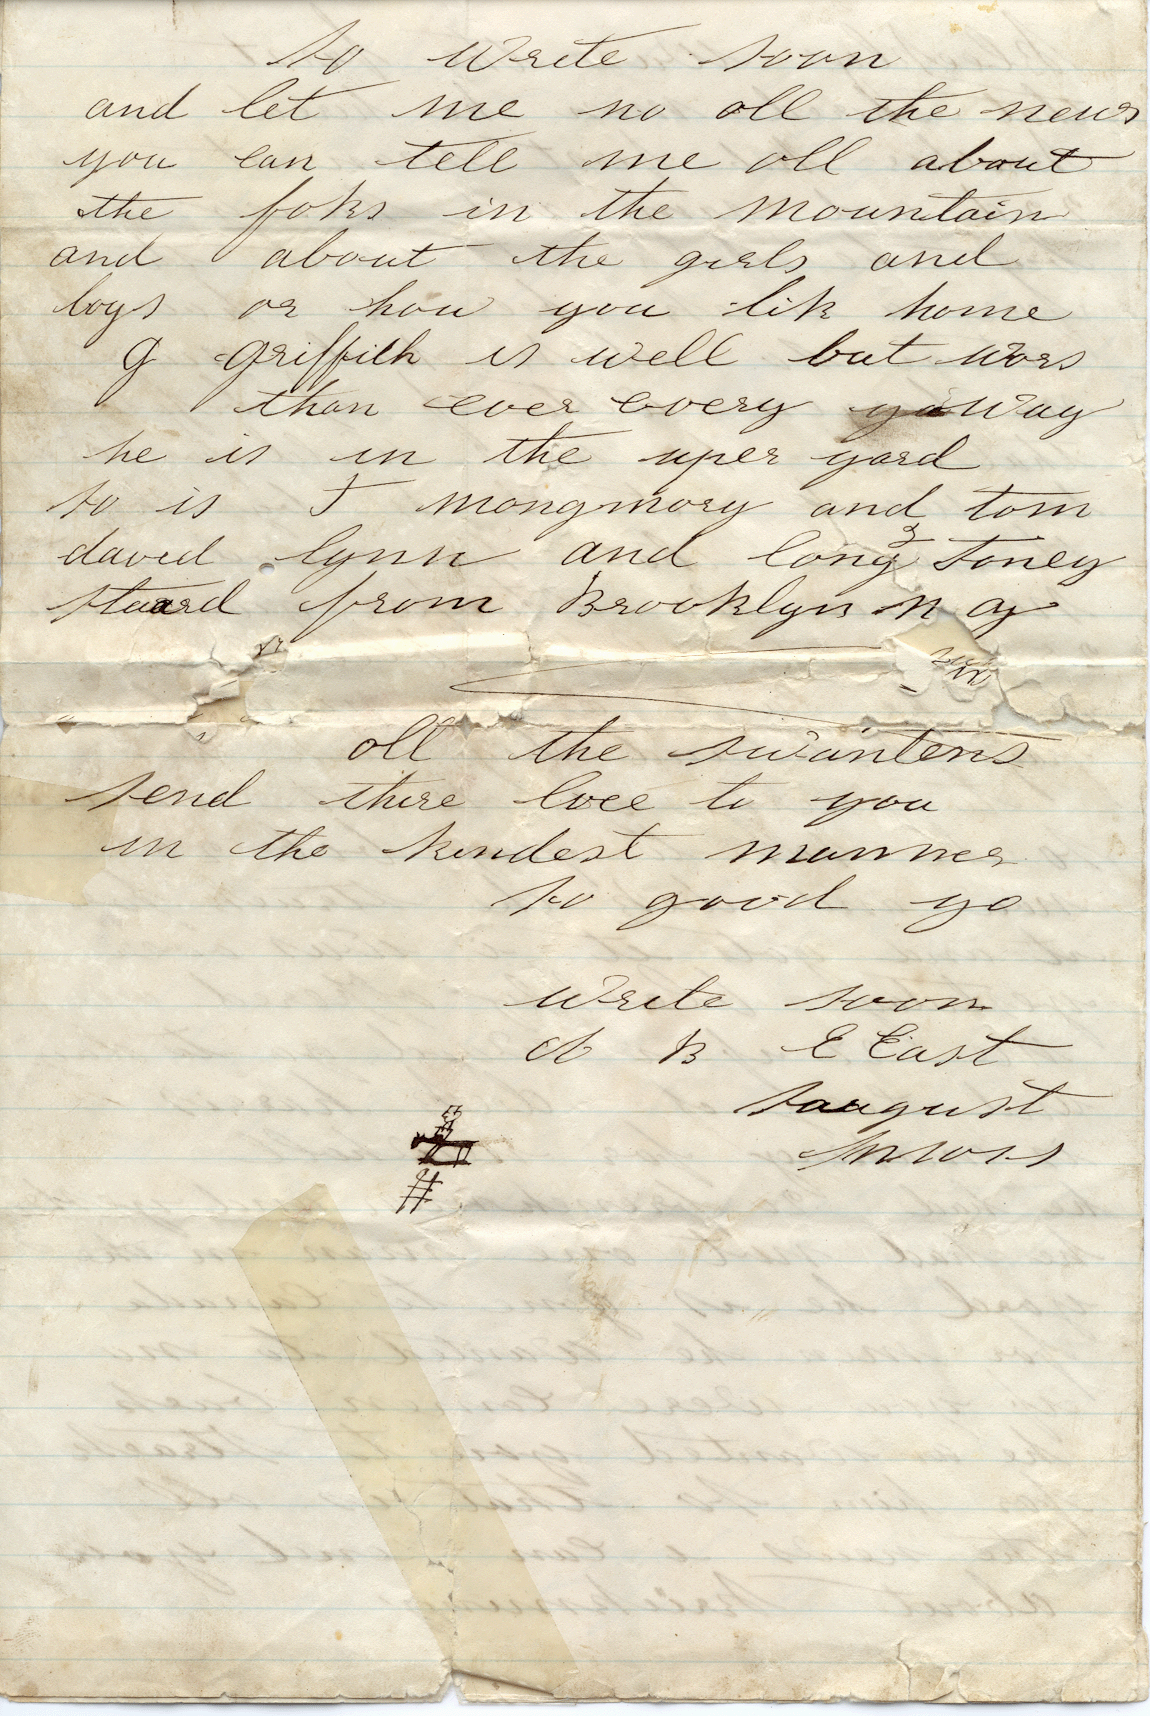 so write soon
and let me no oll the news
you can tell me oll about
the foks in the mountain
and about the girls and
boys or how you lik home
G Griffith is well but wors
than ever every way
he is in the uper yard
so is J mongmory and tom
daved lynn and long Toney
from Brooklyn n y
oll the swantens
send there love to you
in the kindest manner
so good
write soon
B E East